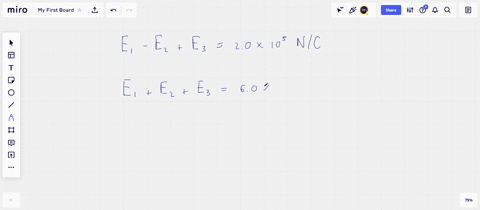 miro My First Board Share
E₁ - E₂ + E₃ = 2.0 × 10⁵ N/C
E₁ + E₂ + E₃ = 6.0
79%